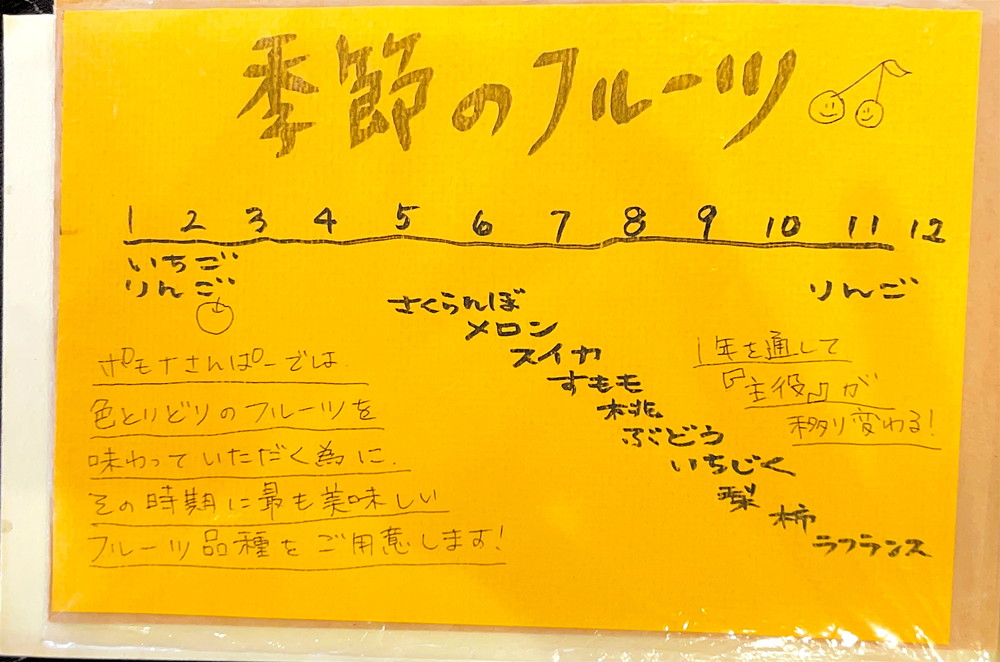 季節のフルーツ
1 2 3 4 5 6 7 8 9 10 11 12
いちご
りんご
りんご
さくらんぼ
メロン
スイカ
すもも
桃
ぶどう
いちじく
梨
柿
ラフランス
ポモナさんぱーでは
色とりどりのフルーツを
味わっていただく為に、
その時期に最も美味しい
フルーツ品種をご用意します!
1年を通して
『主役』が
移り変わる!